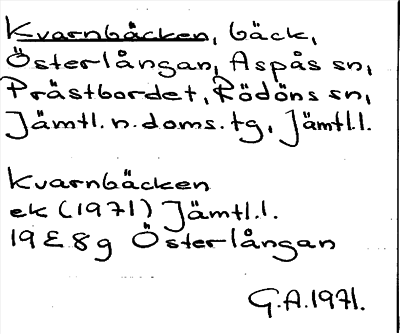 Kvarnbäcken, bäck,
Österlångan, Aspås sn,
Prästbordet, Rödöns sn,
Jämtl.n.doms.tg, Jämtl.l.
Kvarnbäcken
ek (1971) Jämtl.l.
19E8g Österlångan
G.A.1971.